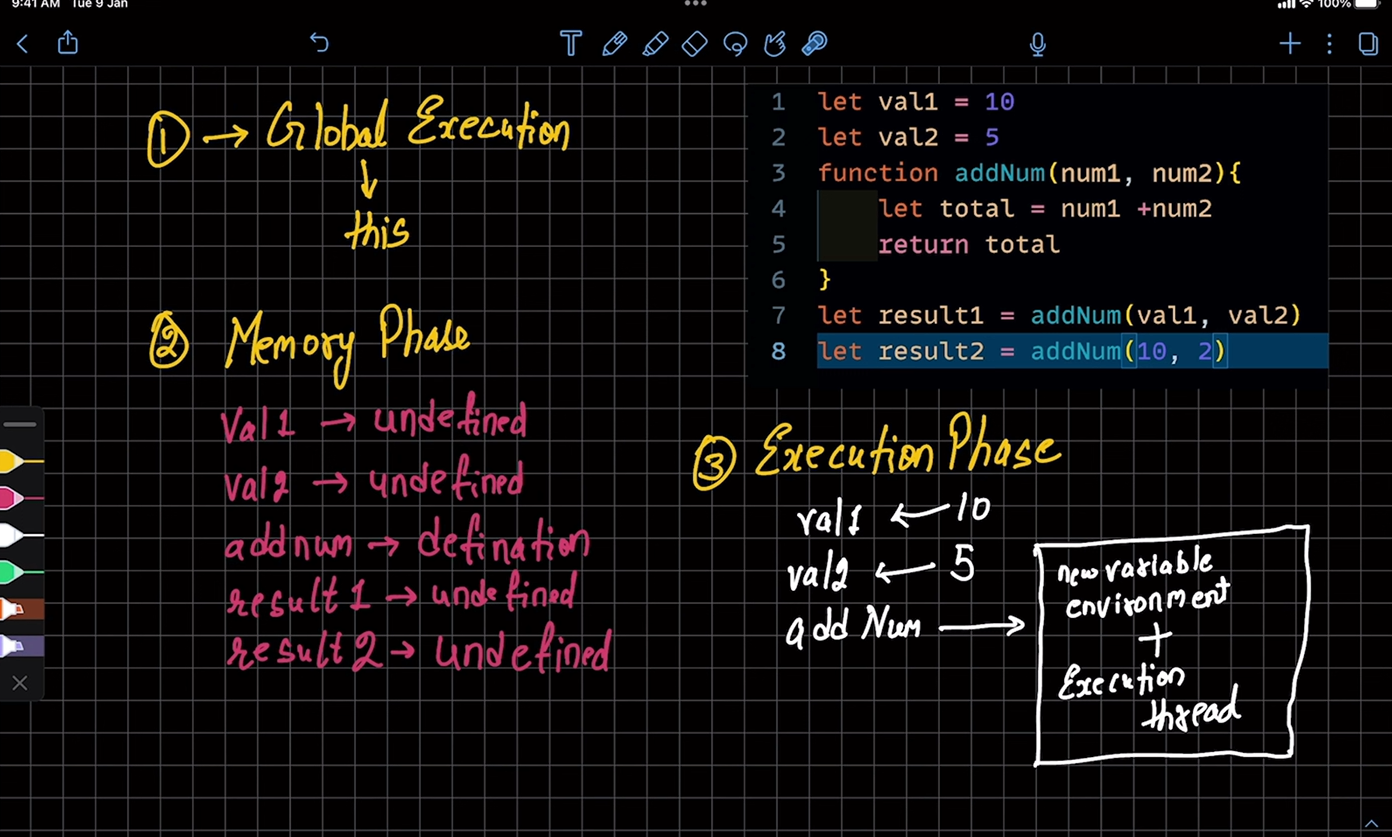 9:41 AM Tue 9 Jan
100%
① → Global Execution
↓
this
② Memory Phase
Val1 → undefined
val2 → undefined
addnum → defination
result1 → undefined
result2 → undefined
1 let val1 = 10
2 let val2 = 5
3 function addNum(num1, num2){
4 let total = num1 +num2
5 return total
6 }
7 let result1 = addNum(val1, val2)
8 let result2 = addNum(10, 2)
③ Execution Phase
val1 ← 10
val2 ← 5
addNum →
new variable
environment
+
Execution
thread